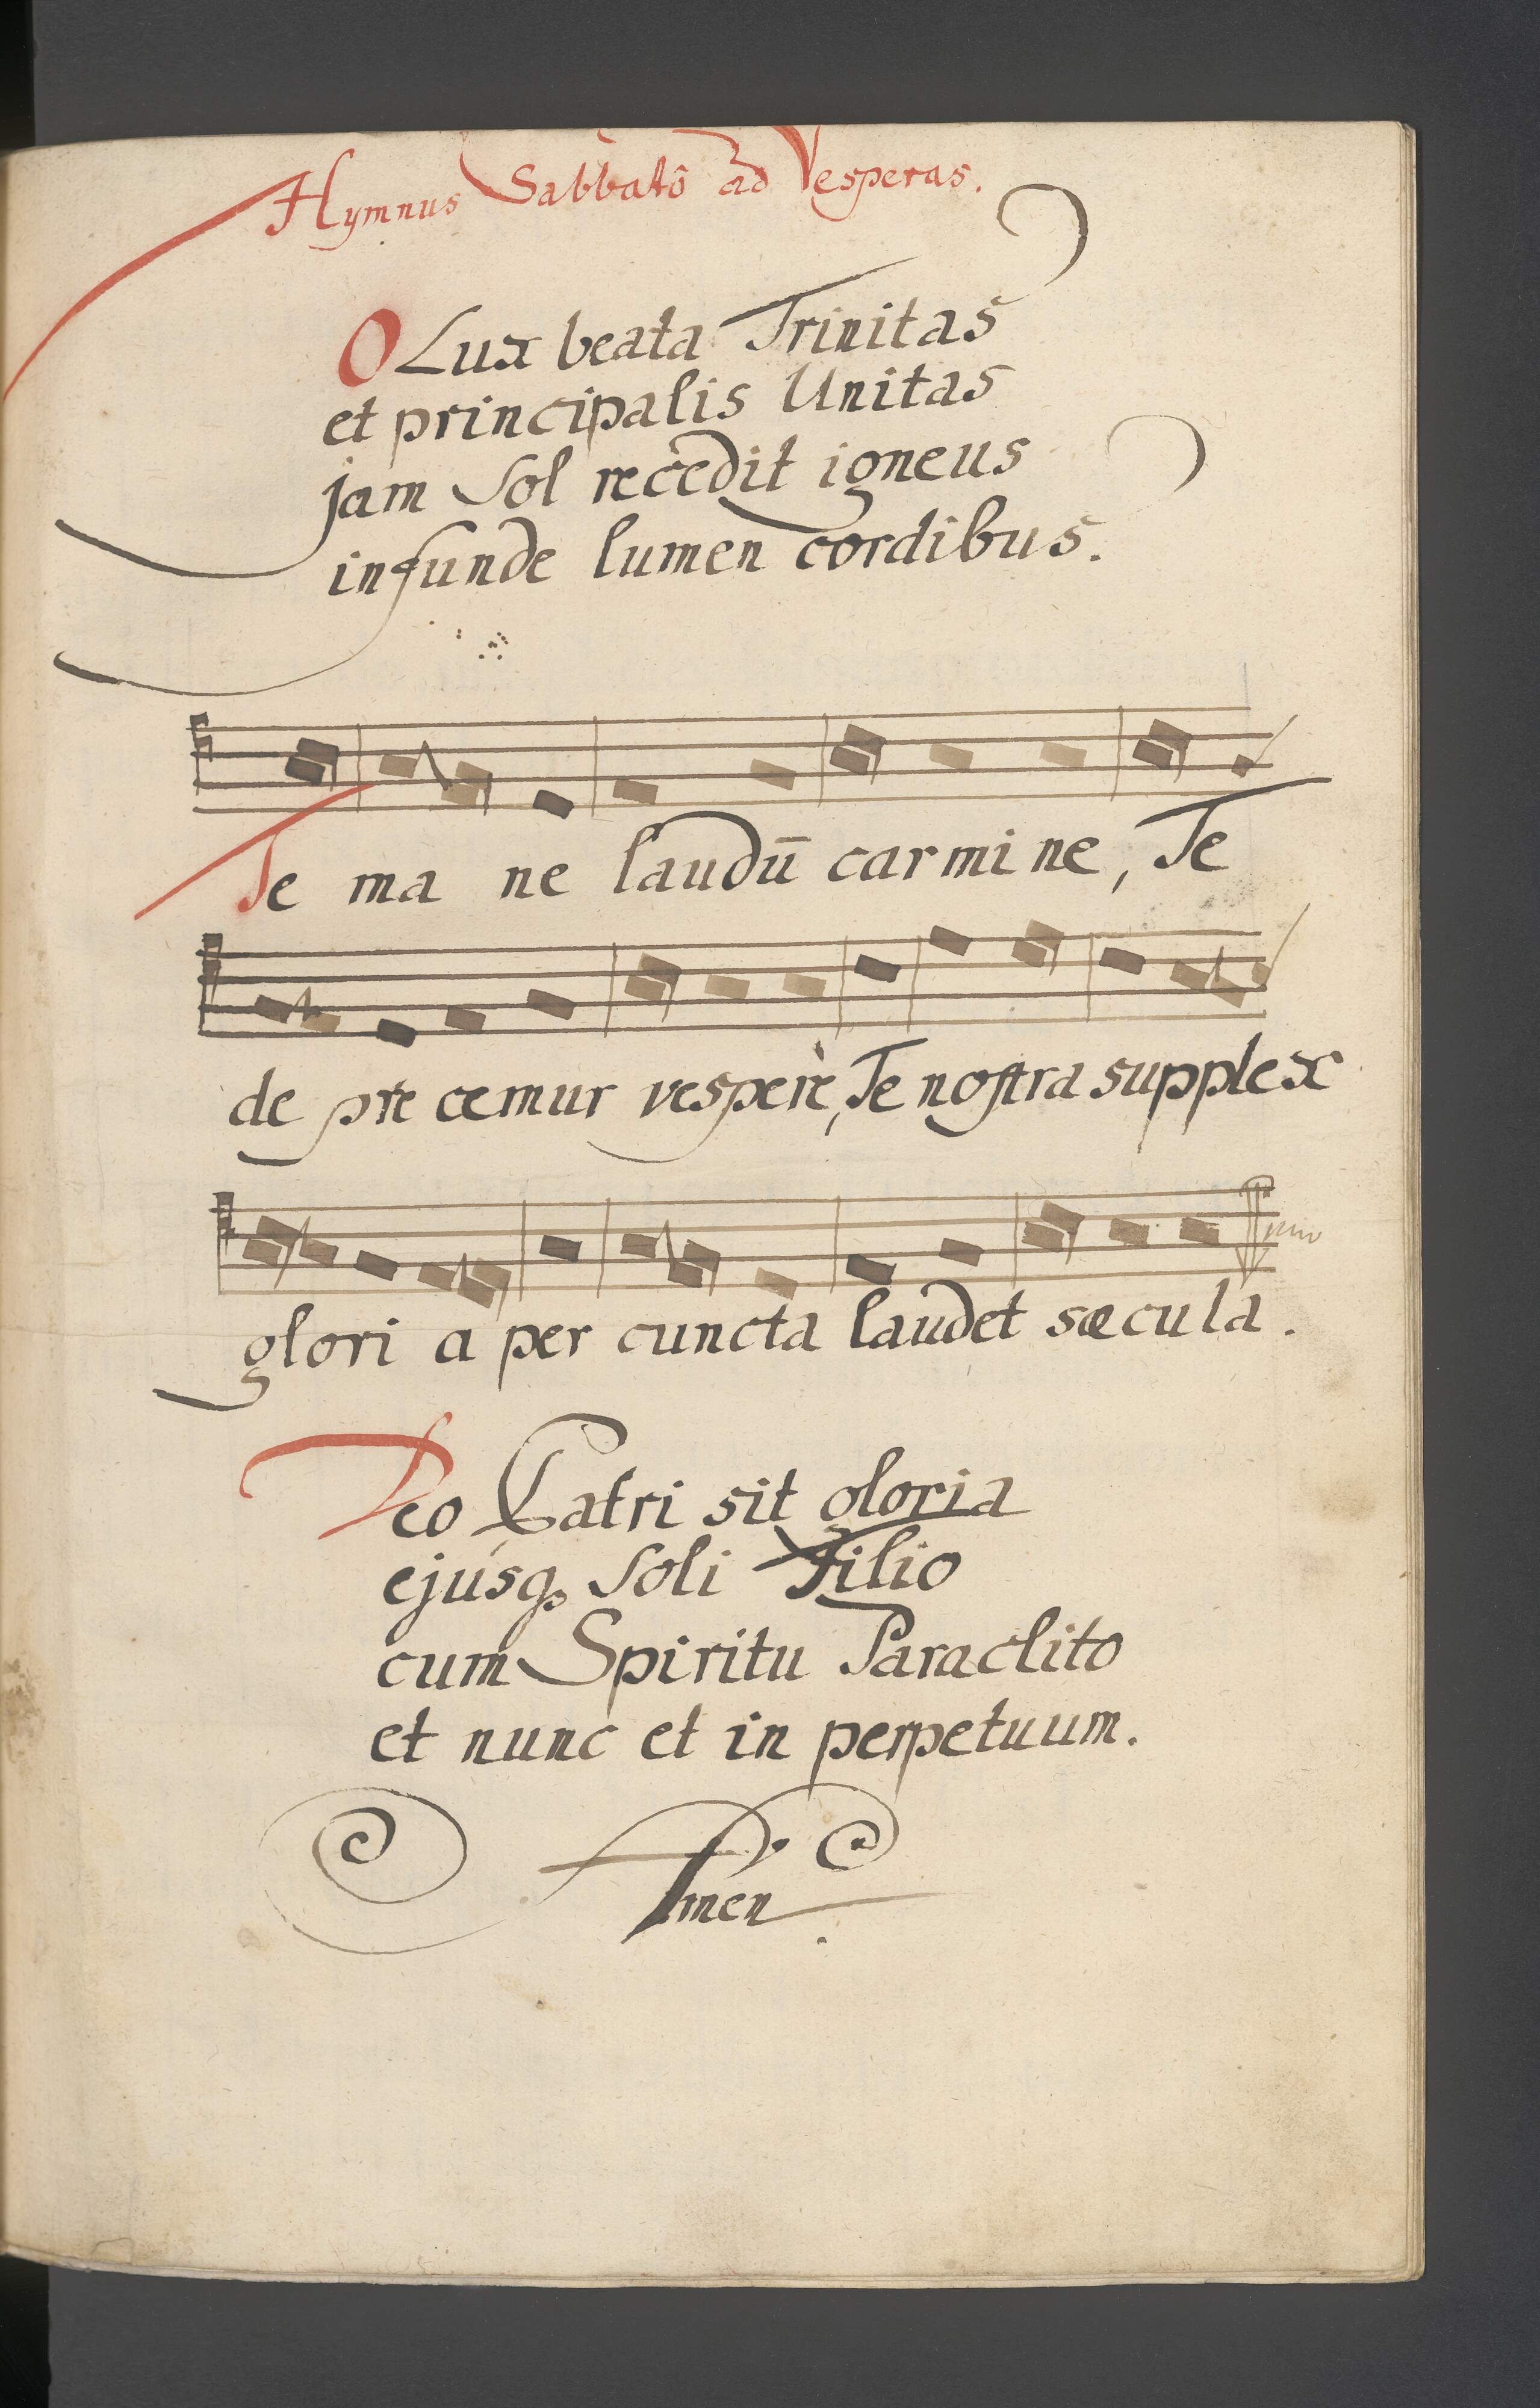 Hymnus Sabbatô ad Vesperas.
O Lux beata Trinitas
et principalis Unitas
jam Sol recedit igneus
infunde lumen cordibus.
Te ma ne laudū carmine, Te
de pre cemur vesperè, Te nostra supplex
glori a per cuncta laudet sæcula.
Deo Patri sit gloria
ejusq, Soli Filio
cum Spiritu Paraclito
et nunc et in perpetuum.
Amen.